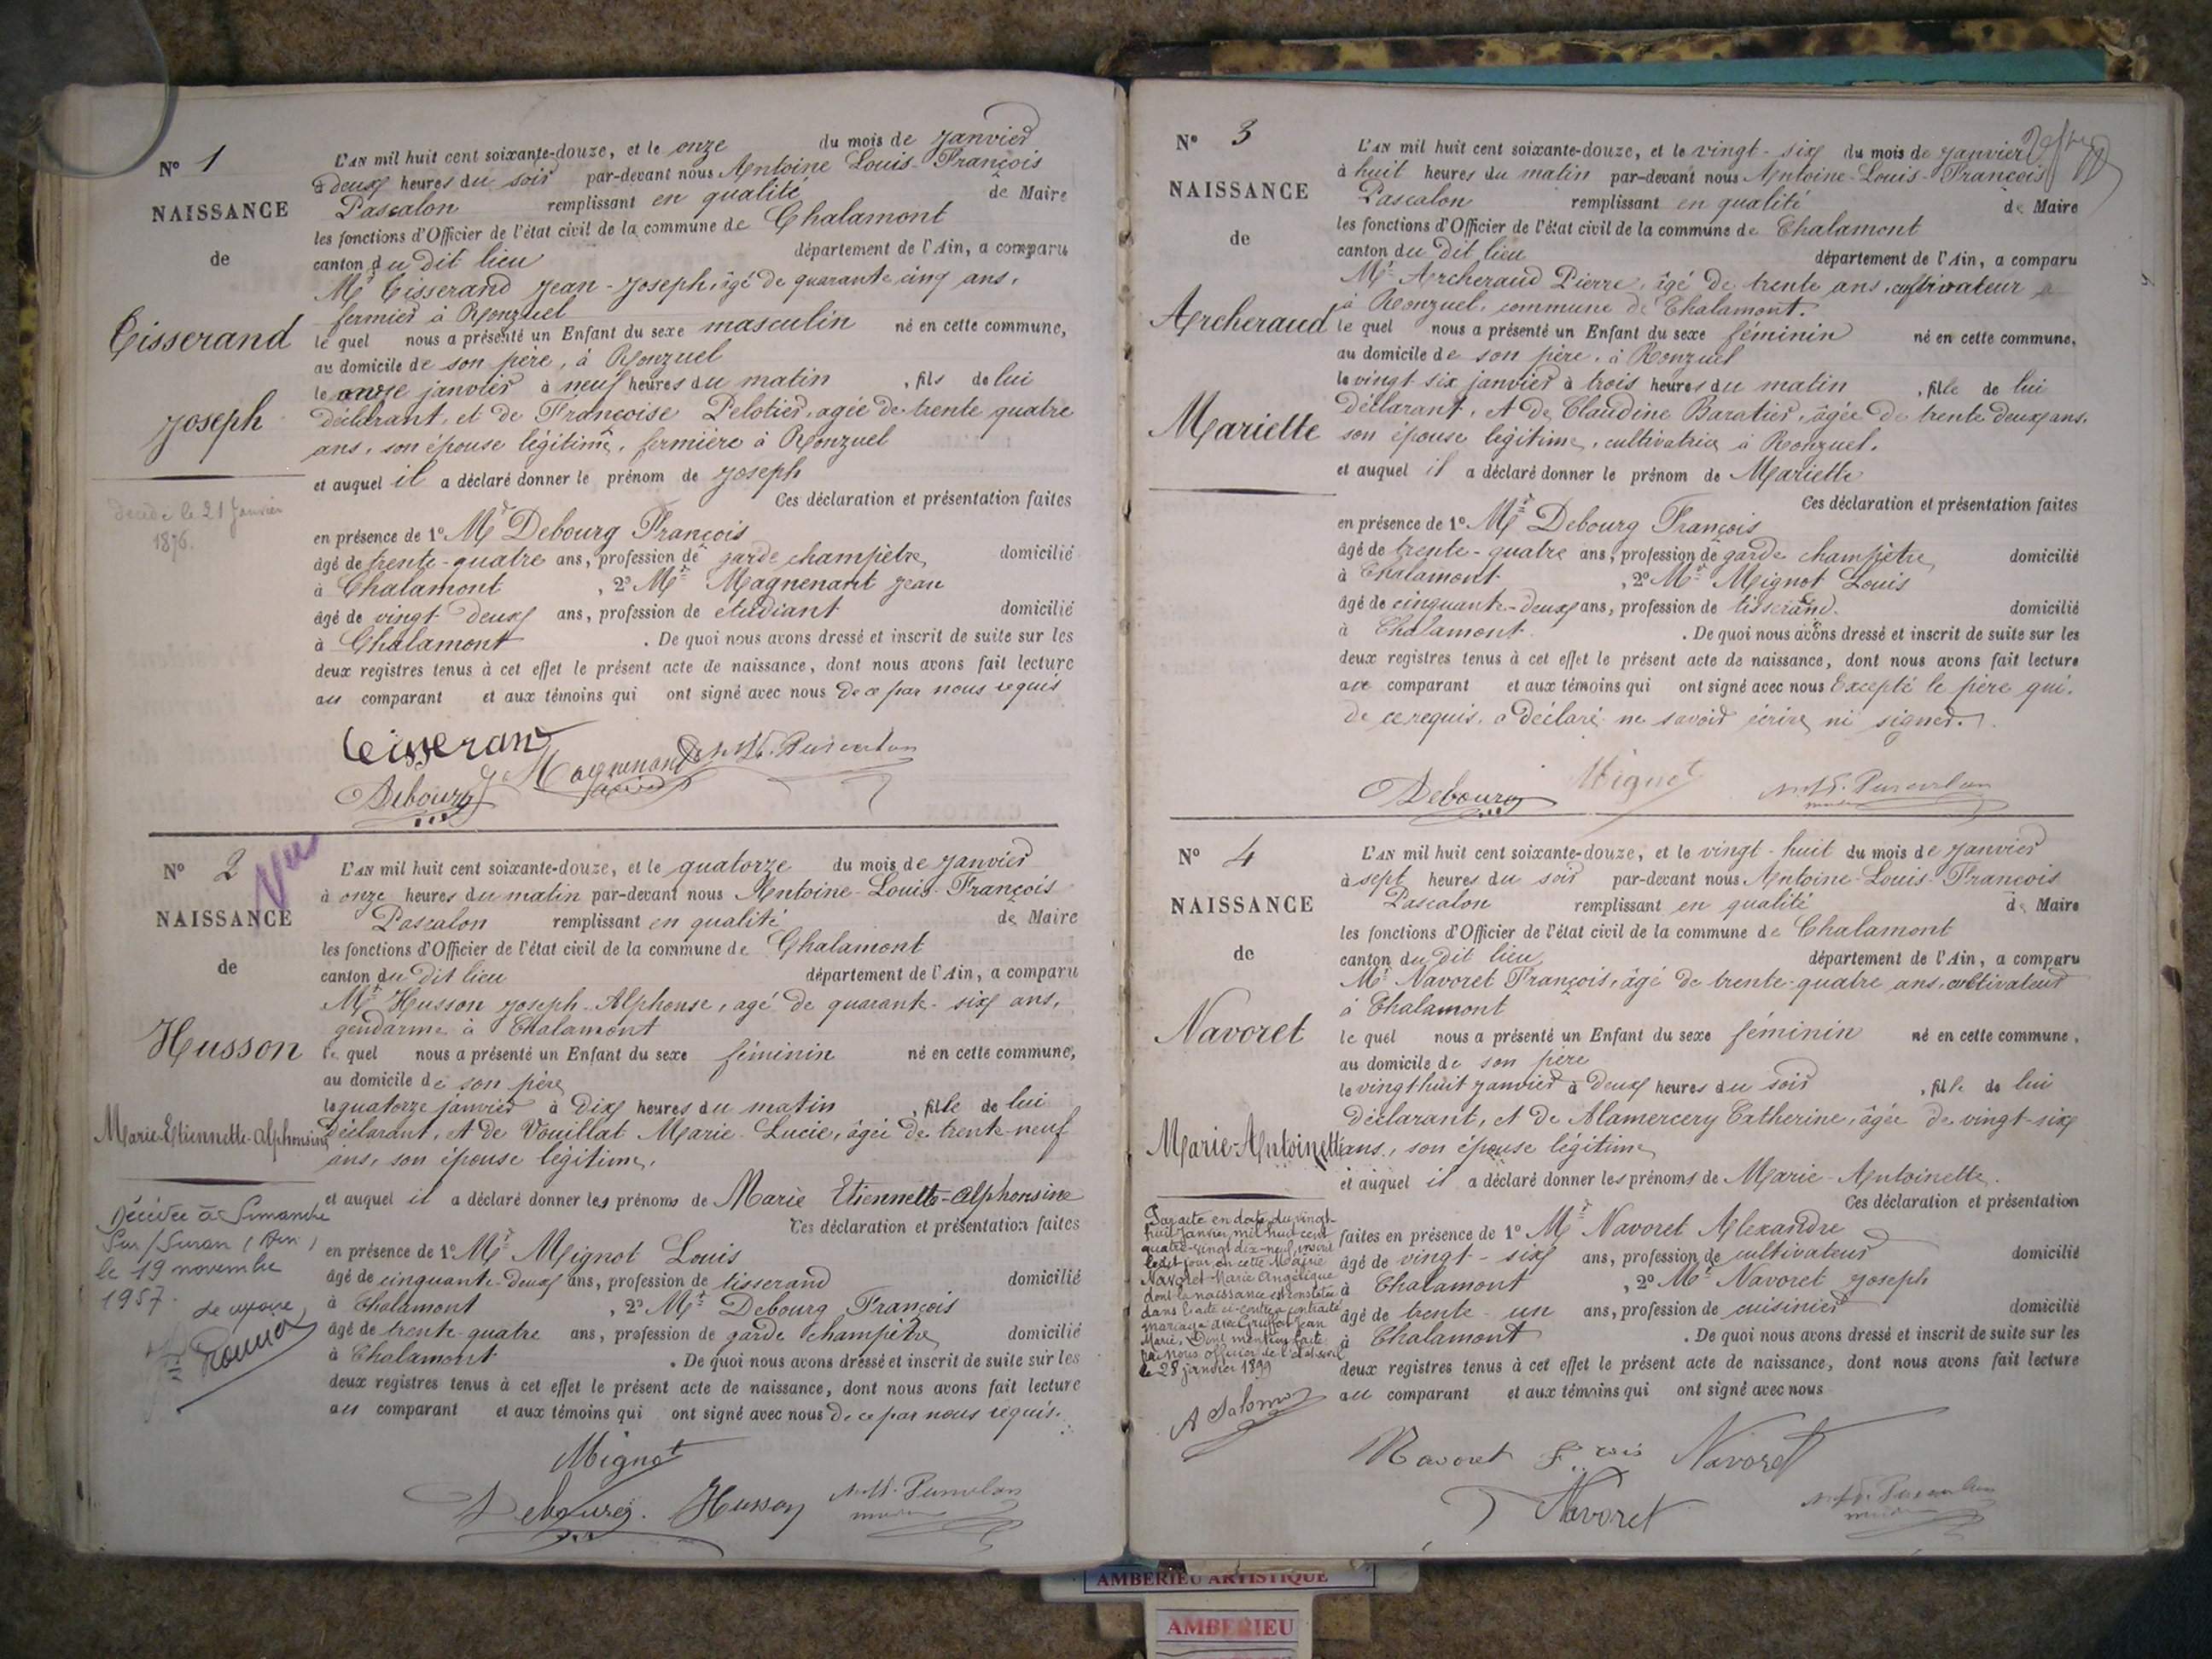 N° 1
NAISSANCE
de
Tisserand
Joseph
décédé le 21 Janvier
1876.
L'AN mil huit cent soixante-douze, et le onze du mois de janvier
à deux heures du soir par-devant nous Antoine Louis-François
Pascalon remplissant en qualité de Maire
les fonctions d'Officier de l'état civil de la commune de Chalamont
canton du dit lieu département de l'Ain, a comparu
Mr Tisserand Jean-Joseph, âgé de quarante cinq ans,
fermier à Ronzuel
le quel nous a présenté un Enfant du sexe masculin né en cette commune,
au domicile de son père, à Ronzuel
le onze janvier à neuf heures du matin, fils de lui
déclarant, et de Françoise Pelotier, agée de trente quatre
ans, son épouse légitime, fermière à Ronzuel
et auquel il a déclaré donner le prénom de Joseph
Ces déclaration et présentation faites
en présence de 1° Mr Debourg François
âgé de trente-quatre ans, profession de garde champêtre, domicilié
à Chalamont, 2° Mr Magnenant Jean
âgé de vingt deux ans, profession de etudiant domicilié
à Chalamont. De quoi nous avons dressé et inscrit de suite sur les
deux registres tenus à cet effet le présent acte de naissance, dont nous avons fait lecture
au comparant et aux témoins qui ont signé avec nous de ce par nous requis
Tisserand
Magnenant
Debourg
N° 2
Vu
NAISSANCE
de
Husson
Marie-Etiennette-Alphonsine
Décédée à Simandre
sur/Suran (Ain)
le 19 novembre
1957.
L'AN mil huit cent soixante-douze, et le quatorze du mois de janvier
à onze heures du matin par-devant nous Antoine-Louis-François
Pascalon remplissant en qualité de Maire
les fonctions d'Officier de l'état civil de la commune de Chalamont
canton du dit lieu département de l'Ain, a comparu
Mr Husson Joseph-Alphonse, agé de quarante-six ans,
gendarme à Chalamont
le quel nous a présenté un Enfant du sexe féminin né en cette commune,
au domicile de son père
le quatorze janvier à dix heures du matin, fille de lui
déclarant, et de Vouillat Marie-Lucie, âgée de trente-neuf
ans, son épouse légitime,
et auquel il a déclaré donner les prénoms de Marie Etiennette-Alphonsine
Ces déclaration et présentation faites
en présence de 1° Mr Mignot Louis
âgé de cinquante-deux ans, profession de tisserand domicilié
à Chalamont, 2° Mr Debourg François
âgé de trente-quatre ans, profession de garde champêtre, domicilié
à Chalamont. De quoi nous avons dressé et inscrit de suite sur les
deux registres tenus à cet effet le présent acte de naissance, dont nous avons fait lecture
au comparant et aux témoins qui ont signé avec nous de ce par nous requis.
Mignot
Debourg. Husson
N° 3
NAISSANCE
de
Archeraud
Mariette
L'AN mil huit cent soixante-douze, et le vingt-six du mois de janvier
à huit heures du matin par-devant nous Antoine-Louis-François
Pascalon remplissant en qualité de Maire
les fonctions d'Officier de l'état civil de la commune de Chalamont
canton du dit lieu département de l'Ain, a comparu
Mr Archeraud Pierre, âgé de trente ans, cultivateur
à Ronzuel, commune de Chalamont.
le quel nous a présenté un Enfant du sexe féminin né en cette commune,
au domicile de son père, à Ronzuel
le vingt six janvier à trois heures du matin, fille de lui
déclarant, et de Claudine Baratier, âgée de trente deux ans,
son épouse légitime, cultivatrice à Ronzuel,
et auquel il a déclaré donner le prénom de Mariette
Ces déclaration et présentation faites
en présence de 1° Mr Debourg François
âgé de trente-quatre ans, profession de garde champêtre, domicilié
à Chalamont, 2° Mr Mignot Louis
âgé de cinquante-deux ans, profession de tisserand. domicilié
à Chalamont. De quoi nous avons dressé et inscrit de suite sur les
deux registres tenus à cet effet le présent acte de naissance, dont nous avons fait lecture
au comparant et aux témoins qui ont signé avec nous Excepté le père qui,
de ce requis, a déclaré ne savoir écrire, ni signer.
Debourg Mignot
N° 4
NAISSANCE
de
Navoret
Marie-Antoinette
Par acte en date du vingt-
huit Janvier mil huit cent
quatre-vingt dix-neuf inscrit
ledit jour en cette Mairie
Navoret Marie Angélique
dont la naissance est constatée
dans l'acte ci-contre a contracté
mariage avec Jean
Marie, Dont mention faite
par Nous officier de l'état civil
le 28 janvier 1899
L'AN mil huit cent soixante-douze, et le vingt-huit du mois de janvier
à sept heures du soir par-devant nous Antoine-Louis-François
Pascalon remplissant en qualité de Maire
les fonctions d'Officier de l'état civil de la commune de Chalamont
canton du dit lieu département de l'Ain, a comparu
Mr Navoret François, âgé de trente-quatre ans, cultivateur
à Chalamont
le quel nous a présenté un Enfant du sexe féminin né en cette commune,
au domicile de son père
le vingt huit janvier à deux heures du soir, fille de lui
déclarant, et de Alamercery Catherine, âgée de vingt-six
ans, son épouse légitime
et auquel il a déclaré donner les prénoms de Marie-Antoinette.
Ces déclaration et présentation
faites en présence de 1° Mr Navoret Alexandre
âgé de vingt-six ans, profession de cultivateur domicilié
à Chalamont, 2° Mr Navoret Joseph
âgé de trente-un ans, profession de cuisinier domicilié
à Chalamont. De quoi nous avons dressé et inscrit de suite sur les
deux registres tenus à cet effet le présent acte de naissance, dont nous avons fait lecture
au comparant et aux témoins qui ont signé avec nous
Navoret Fçois Navoret
Navoret
AMBERIEU ARTISTIQUE
AMBERIEU